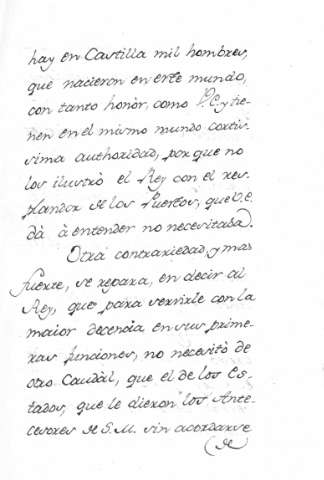 hay en Castilla mil hombres,
que nacieron en este mundo,
con tanto honòr, como V.E. y tie-
nen en el mismo mundo cortis-
sima authoridad, por que no
los ilustrò el Rey con el res-
plandor de los Puestos, que V.E.
dà à entender no necesitaba.
Otra contrariedad, y mas
fuerte, se repara, en decir al
Rey, que para servirle con la
maior decencia en sus prime-
ras funciones, no necesitò de
otro Caudàl, que el de los Es-
tados, que le dieron los Ante-
cesores de S.M. sin acordarse
(de